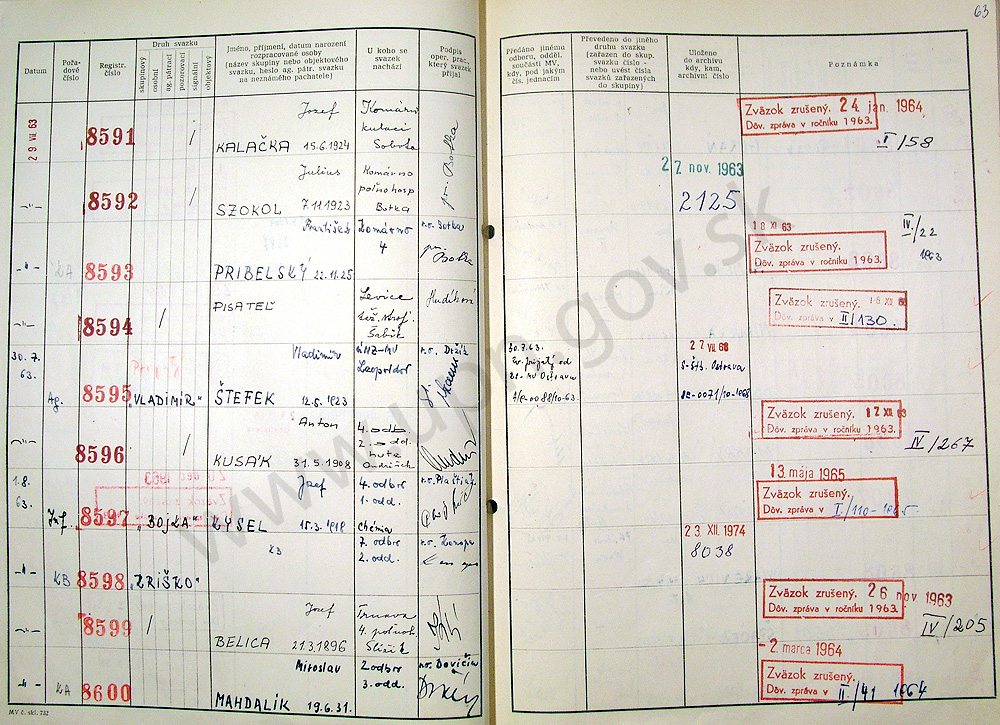 63
Datum
Pořadové číslo
Registr. číslo
Druh svazku
skupinový
osobní
ag. pátrací
pozorovací
signální
objektový
Jméno, příjmení, datum narození
rozpracované osoby
(název skupiny nebo objektového
svazku, heslo ag. pátr. svazku
na neznámého pachatele)
U koho se
svazek
nachází
Podpis
oper. prac.,
který svazek
přijal
Předáno jinému
odboru, odděl.
součásti MV,
kdy, pod jakým
čís. jednacím
Převedeno do jiného
druhu svazku
(zařazen do skup.
svazku číslo -
nebo uvést čísla
svazků zařazených
do skupiny)
Uloženo
do archivu
kdy, kam,
archivní číslo
Poznámka
29 VII 63
8591
/
Jozef
KALAČKA 15.6.1924
Komárno
kulaci
Sobota
Botka
Zväzok zrušený. 24 jan. 1964
Dôv. zpráva v ročníku 1963.
I/58
-"-
8592
/
Július
SZOKOL 7.11.1923
Komárno
poľnohosp
Botka
Botka
27. nov. 1963
2125
-"-
KA
8593
František
PRIBELSKÝ 22.11.25
Komárno
4
r.o. Botka
Botka
18 XI 63
Zväzok zrušený.
Dôv. zpráva v ročníku 1963.
IV./22
1963
-"-
8594
/
PISATEĽ
Levice
Zväzok zrušený. 16 XII 63
Dôv. zpráva v II/130.
30.7.
63.
Ag.
8595
"VLADIMÍR"
Vladimír
ŠTEFEK 12.5.1923
Leopoldov
30.7.63.
27 VII 68
Ostrava
-"-
8596
/
Anton
KUSÁK 31.5.1908
4. odb
2. odd.
huta
Zväzok zrušený. 12 XII 63
Dôv. zpráva v ročníku 1963.
IV/267
1.8.
63.
Inf.
8597
"BOJZA"
Jozef
KYSEL 15.3.1912
4. odbor
1. odd.
Chémia
13. mája 1965
Zväzok zrušený.
Dôv. zpráva v I/110-1965
-"-
KB
8598
"ZRIŠKO"
KB
7. odbor
2. odd.
23. XII. 1974
8038
-"-
8599
/
Jozef
BELICA 21.3.1896
Trnava
Zväzok zrušený. 26 nov 1963
Dôv. zpráva v ročníku 1963.
IV/205
-"-
KA
8600
Miroslav
MAHDALÍK 19.6.31.
2 odbor
3. odd.
- 2. marca 1964
Zväzok zrušený.
Dôv. zpráva v II./41 1964
MV č. skl. 232
www.upn.gov.sk